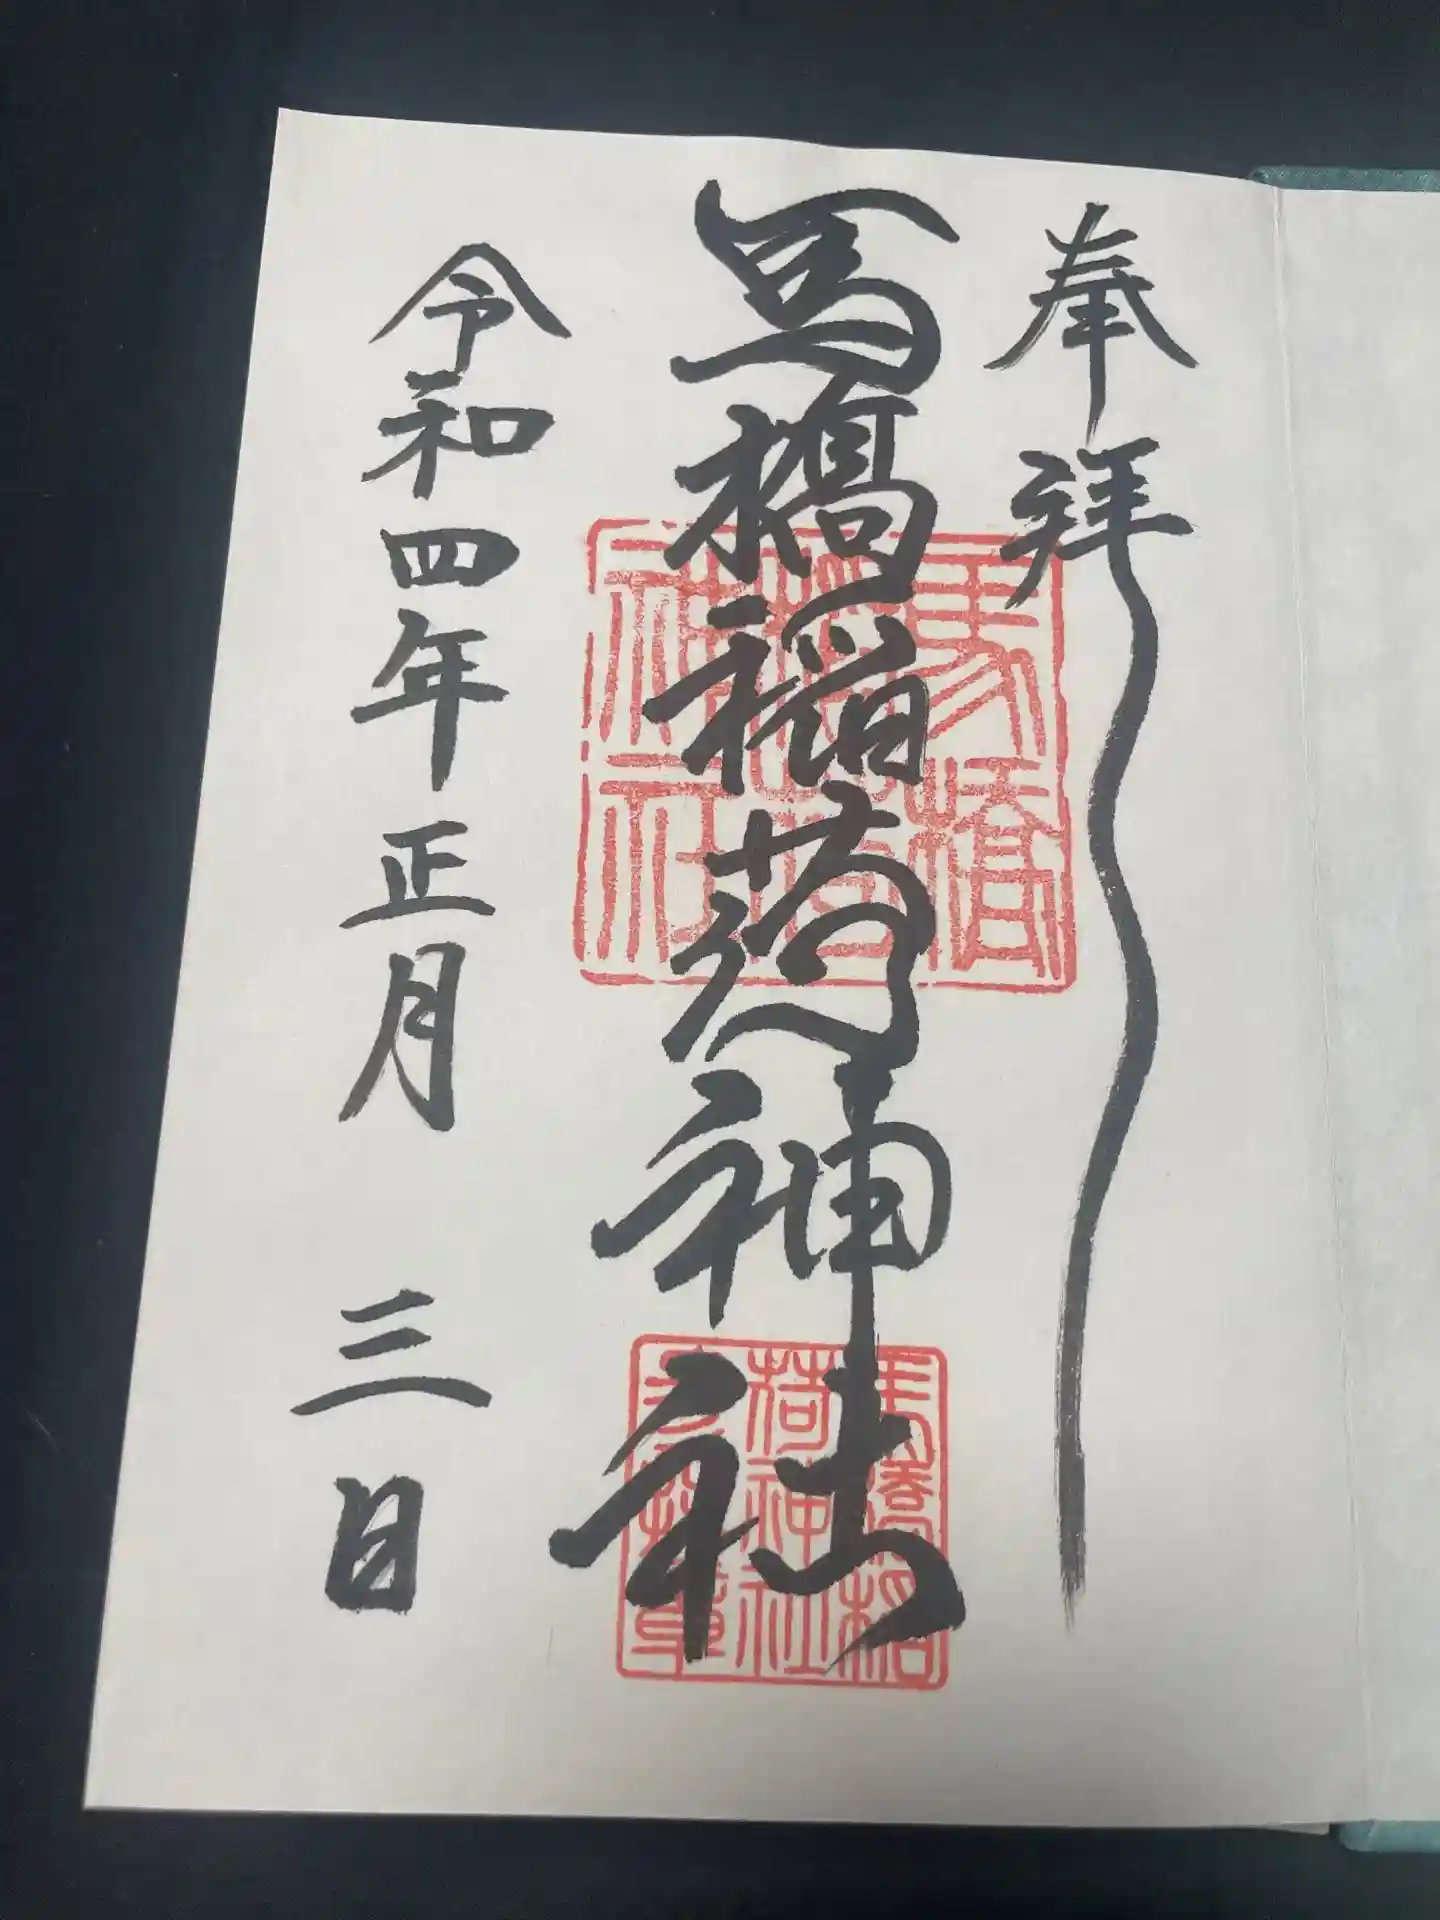 奉拝
馬橋稲荷神社
令和四年正月三日
馬橋
稲荷
神社
馬橋稲
荷神社